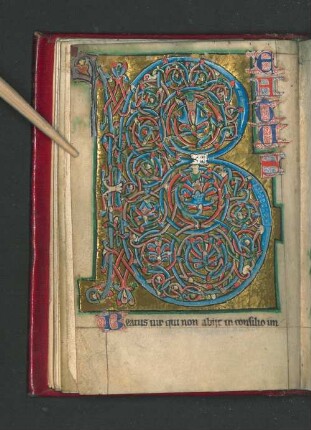 B
EATUS
Beatus uir qui non abijt in consilio im